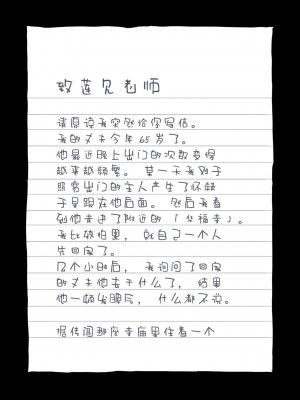 致莲见老师
请原谅我突然给你写信。
我的丈夫今年65岁了。
他最近晚上出门的次数变得
越来越频繁。 某一天我对于
照常出门的主人产生了怀疑
于是跟在他后面。 然后我看
到他走进了附近的「华福寺」。
我比较怕黑， 就自己一个人
先回家了。
几个小时后， 我询问了回家
的丈夫他去干什么了， 结果
他一顿发脾气， 什么都不说。
据传闻那座寺庙里住着一个